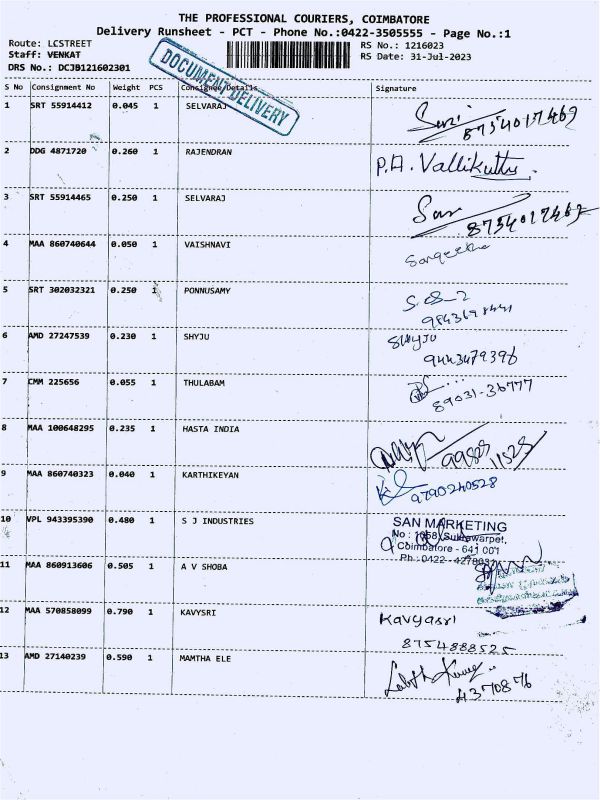 THE PROFESSIONAL COURIERS, COIMBATORE
Delivery Runsheet - PCT - Phone No.:0422-3505555 - Page No.:1
Route: LCSTREET RS No.: 1216023
Staff: VENKAT RS Date: 31-Jul-2023
DRS No.: DCJB121602301
DOCUMENT DELIVERY
S No Consignment No Weight PCS Consignee Details Signature
1 SRT 55914412 0.045 1 SELVARAJ
8754017469
2 DDG 4871720 0.260 1 RAJENDRAN P.A. Vallikuttu
3 SRT 55914465 0.250 1 SELVARAJ
8754017469
4 MAA 860740644 0.050 1 VAISHNAVI Sangeetha
5 SRT 302032321 0.250 1 PONNUSAMY
6 AMD 27247539 0.230 1 SHYJU SHYJU
9443479396
7 CMM 225656 0.055 1 THULABAM
89031-36777
8 MAA 100648295 0.235 1 HASTA INDIA
9 MAA 860740323 0.040 1 KARTHIKEYAN
9790240528
10 VPL 943395390 0.480 1 S J INDUSTRIES SAN MARKETING
No : 1058, Sukrawarpet,
Coimbatore - 641 001
Ph : 0422
11 MAA 860913606 0.505 1 A V SHOBA
12 MAA 570858099 0.790 1 KAVYSRI Kavyasri
8754888525
13 AMD 27140239 0.590 1 MAMTHA ELE
4370876